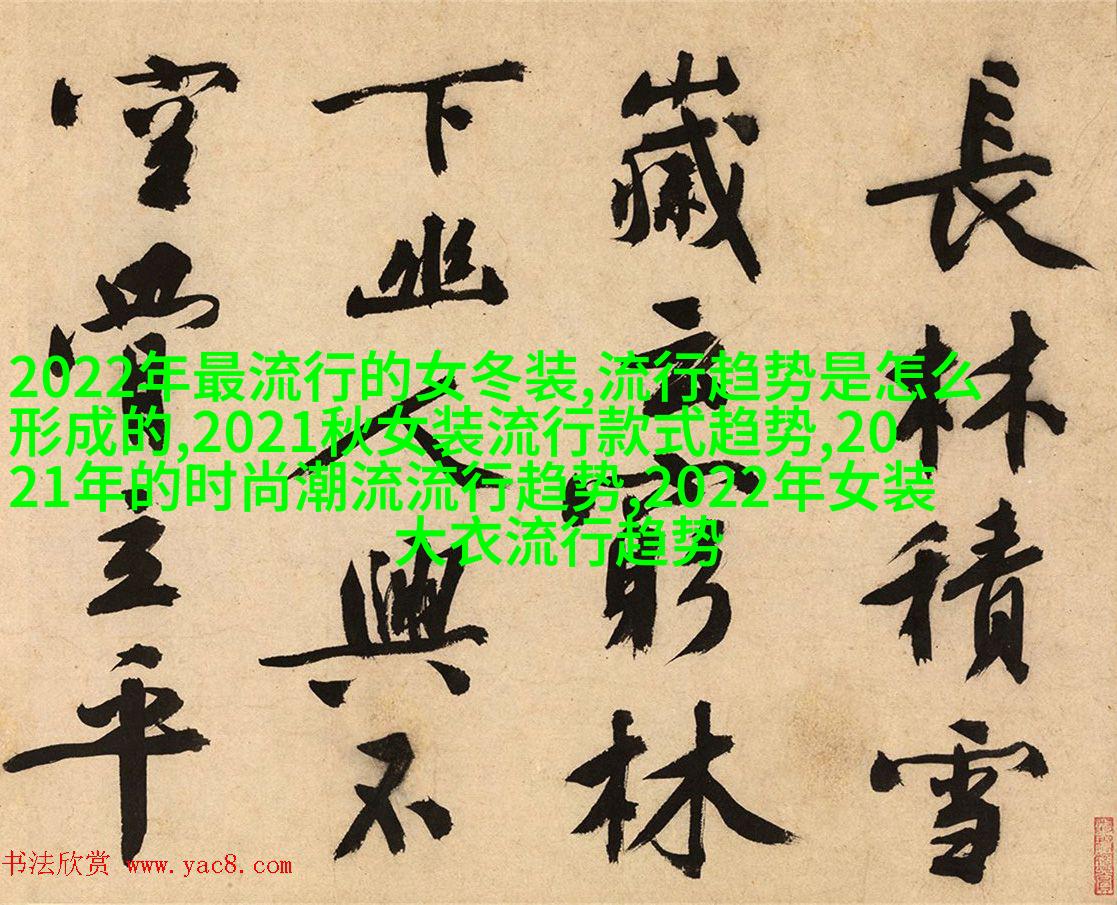 長林積雪
歲云窮林
下幽人興不
空平
2022年最流行的女冬装,流行趋势是怎么
形成的,2021秋女装流行款式趋势,20
21年的时尚潮流流行趋势,2022年女装
大衣流行趋势
书法欣赏 www.yac8.com